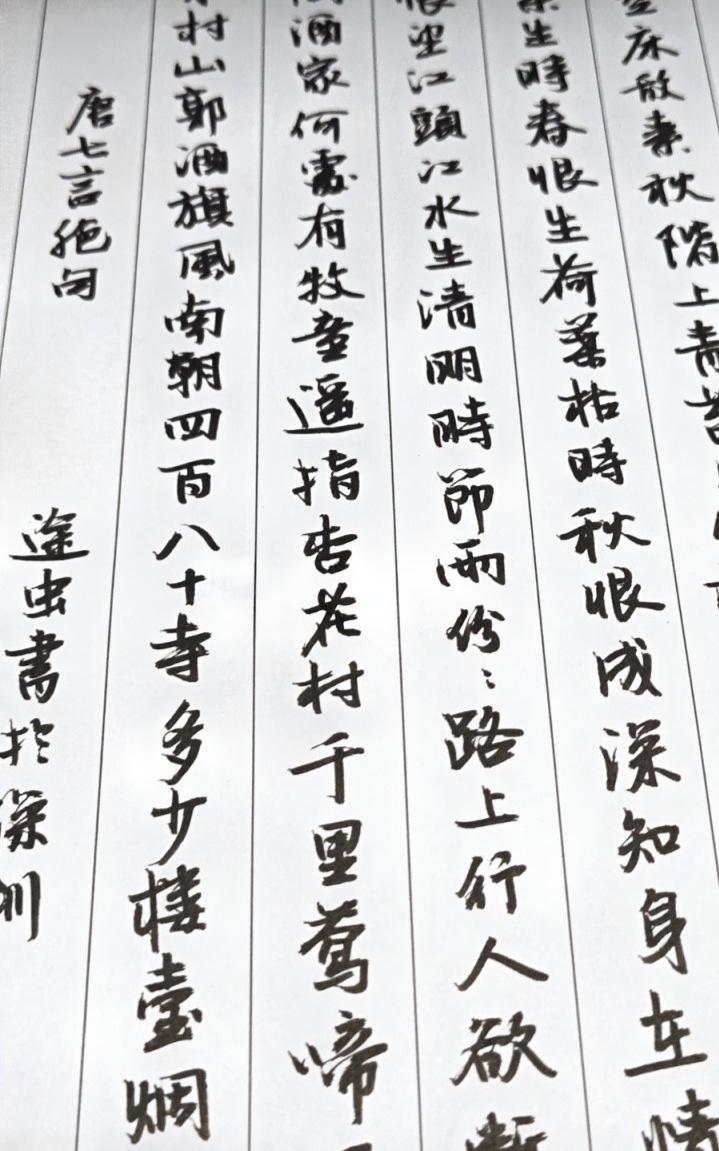 空床敵素秋階上青苔
葉生時春恨生荷葉枯時秋恨成深知身在情
望江頭江水生清明時節雨份々路上行人欲斷
酒家何處有牧童遥指杏花村千里鶯啼
村山郭酒旗風南朝四百八十寺多少楼臺烟
唐七言絶句
途虫書於深圳